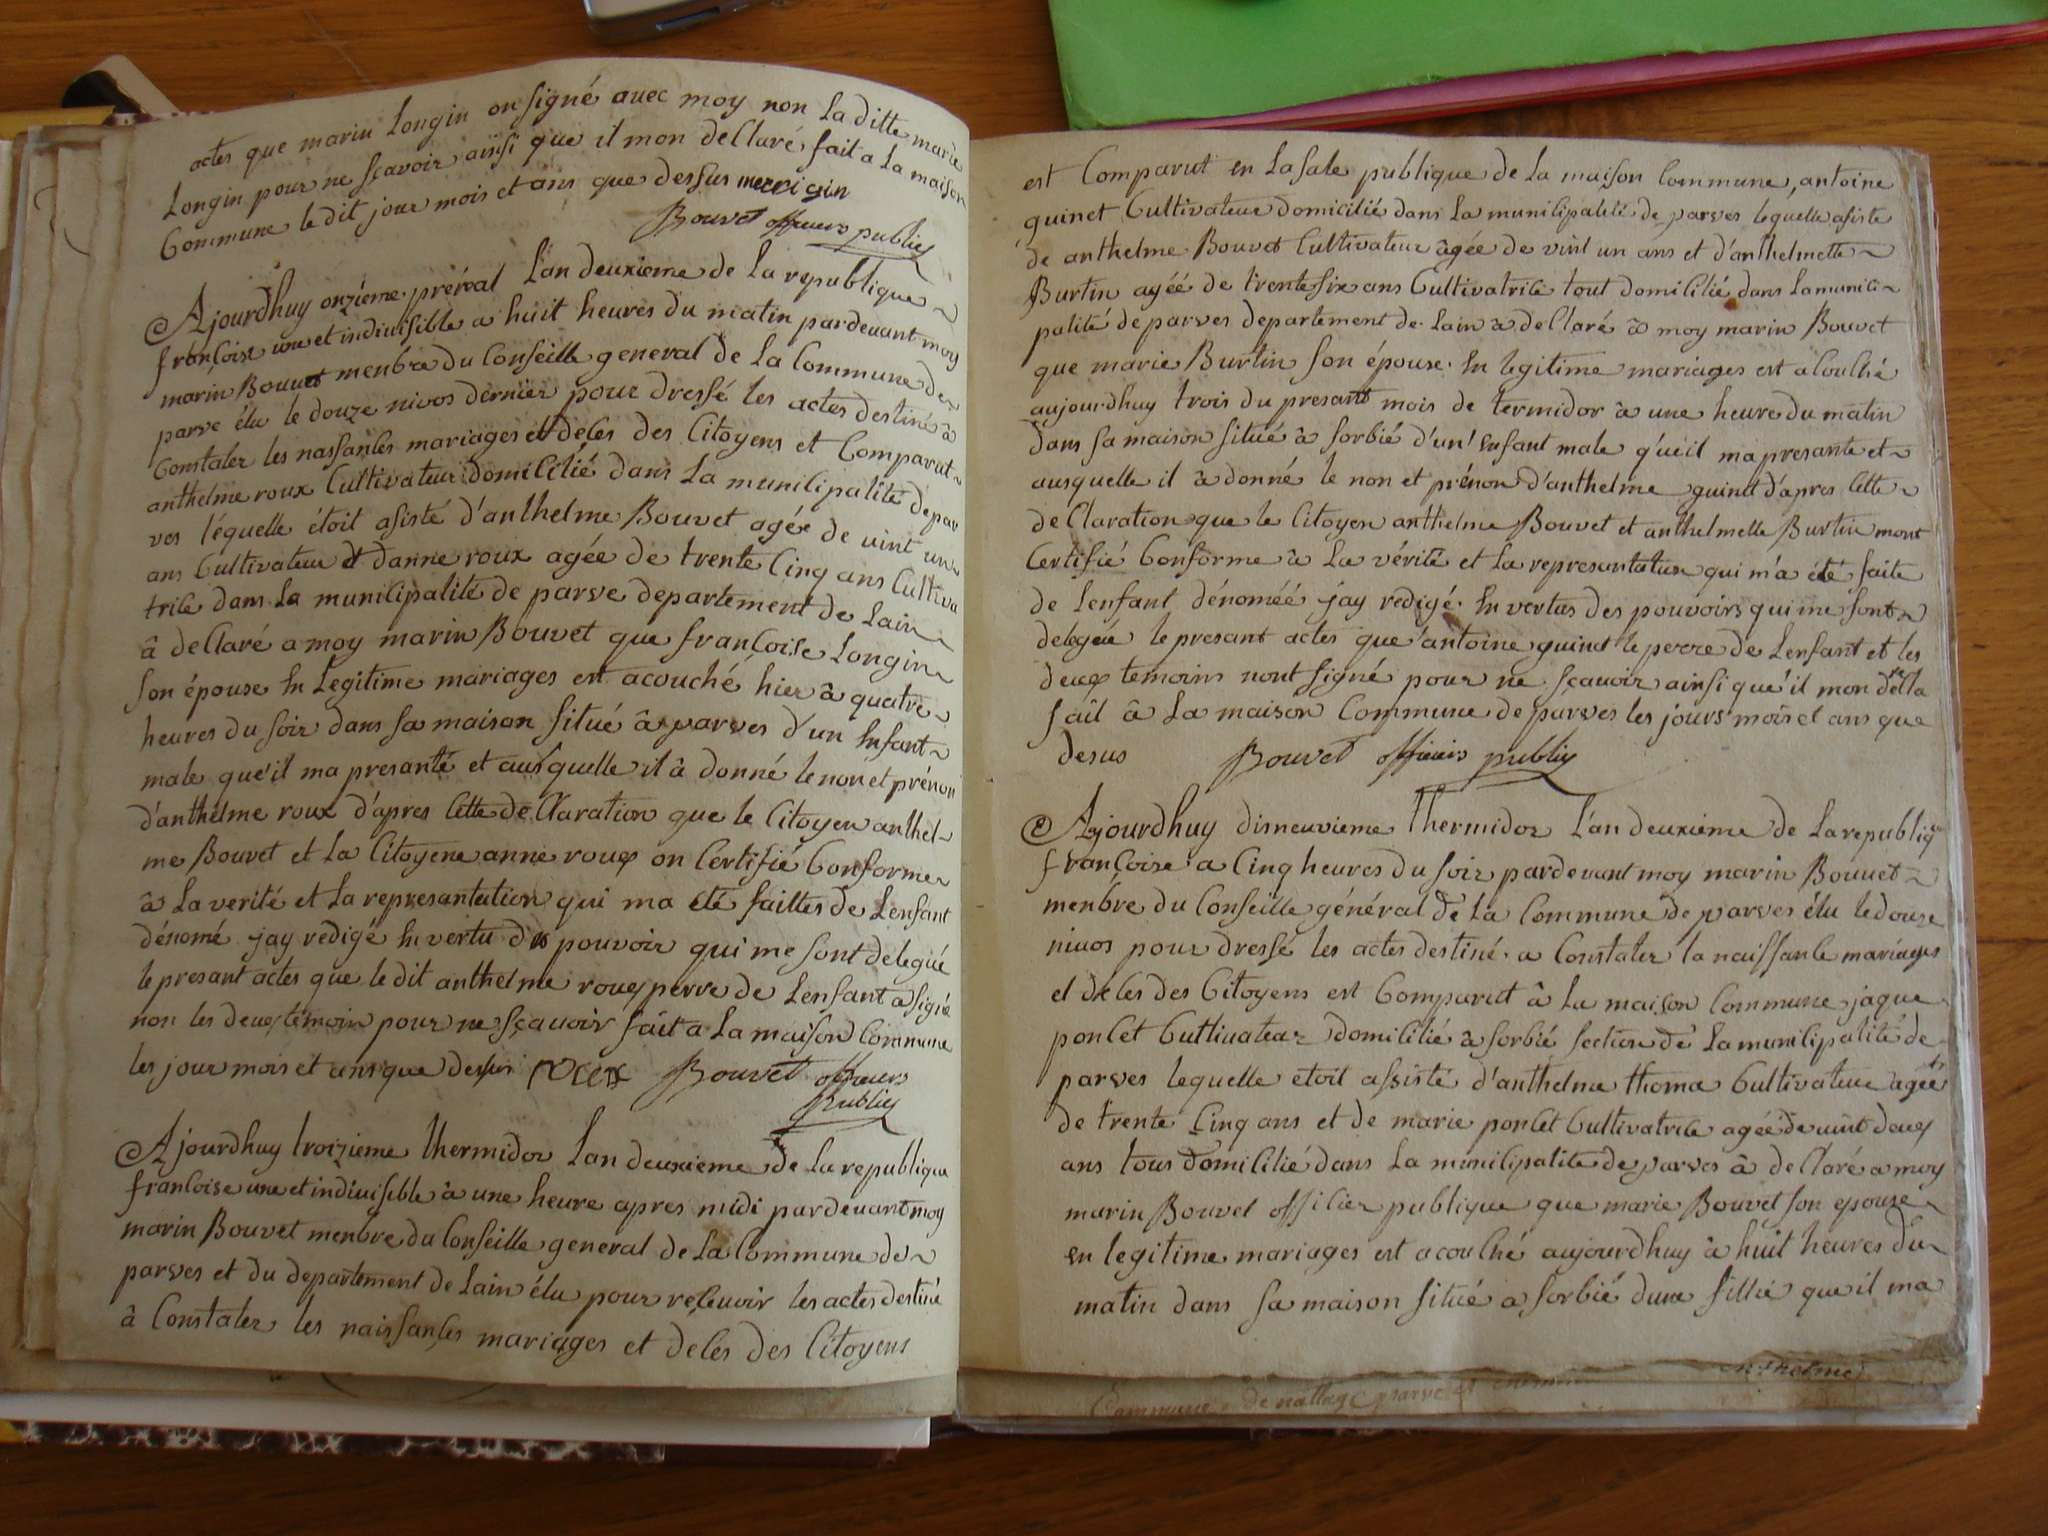 actes que marin Longin on signé avec moy non La ditte marie
Longin pour ne sçavoir ainsi que il mon declaré fait a La maison
Commune le dit jour mois et ans que dessus
Bouvet officiers publics
Ajourdhuy onzieme preréal Lan deuxieme de La republique
françoise une et indivisible a huit heures du matin pardevant moy
marin Bouvet menbre du Conseille general de La Commune de
parve élu le douze nivos dernier pour dressé les actes destiné à
Constater les nassances mariages et déces des Citoyens et Comparut
anthelme roux Cultivateur domicilié dans La municipalité de par
ves léquelle étoit asisté d'anthelme Bouvet agée de vint un
ans Cultivateur et danne roux agée de trente Cinq ans Cultiva
trice dans La municipalité de parve departement de Lain
â declaré a moy marin Bouvet que françoise Longin
son épouse En Legitime mariages est acouché hier â quatre
heures du soir dans sa maison situé â parves d'un Enfant
male que'il ma presanté et ausquelle il â donné le non et prénon
d'anthelme roux d'apres Cette de Claration que le Citoyen anthel-
me Bouvet et La Citoyene anne roux on Certifié Conforme
â La verité et La represantation qui ma été faittes de Lenfant
dénomé jay redigé En vertu des pouvoir qui me sont delegué
le presant actes que le dit anthelme roux perre de Lenfant a signé
non les deux témoin pour ne sçavoir fait a La maison Commune
les jour mois et ans que dessus roux Bouvet officiers
publics
Ajourdhuy troizieme thermidor Lan deuxieme de La republique
francoise une et indivisible â une heure apres midi pardevant moy
marin Bouvet menbre du Conseille general de La Commune de
parves et du departement de Lain élu pour recevoir les actes destiné
â Constater les naissances mariages et déces des Citoyens
est Comparut en La sale publique de La maison Commune, antoine
quinet Cultivateur domicilié dans La municipalité de parves lequelle asiste
de anthelme Bouvet Cultivateur âgée de vint un ans et d'anthelmette
Burtin agéé de trente six ans Cultivatrice tout domicilié dans La munici-
palité de parves departement de Lain â declaré â moy marin Bouvet
que marie Burtin son épouse En legitime mariages est acouché
aujourdhuy trois du presant mois de termidor à une heure du matin
dans sa maison situé â sorbié d'un' Enfant male que'il ma presante et
ausquelle il â donné le non et prénon d'anthelme quinet d'apres Cette
de Claration que le Citoyen anthelme Bouvet et anthelmette Burtin mont
Certifié Conforme â La vérité et La represantation qui m'a été faite
de Lenfant dénoméé jay redigé En vertus des pouvoirs qui me sont
delegée le presant actes que antoine quinet le perre de Lenfant et les
deux temoins nont signé pour ne sçavoir ainsi que'il mon déclla
fait â La maison Commune de parves les jours mois et ans que
desus Bouvet officiers publics
Ajourdhuy disneuvieme thermidor L'an deuxieme de La republiq
françoise a Cinq heures du soir pardevant moy marin Bouvet
menbre du Conseille général de La Commune de parves élu le douze
nivos pour dressé les actes destiné a Constater la naissance mariages
et déces des Citoyens est Comparut â La maison Commune jaque
poncet Cultivateur domicilié a sorbié section de La municipalité de
parves lequelle etoit assisté d'anthelme thoma Cultivateur ageé
de trente Cinq ans et de marie poncet Cultivatrice ageé de vint deux
ans tous domicilié dans La municipalité de parves â declaré a moy
marin Bouvet officier publique que marie Bouvet son epouse
en legitime mariages est acouché aujourdhuy à huit heures du
matin dans sa maison situé a sorbié dune fillie que il ma
anthelme
Commune de nattage parve et